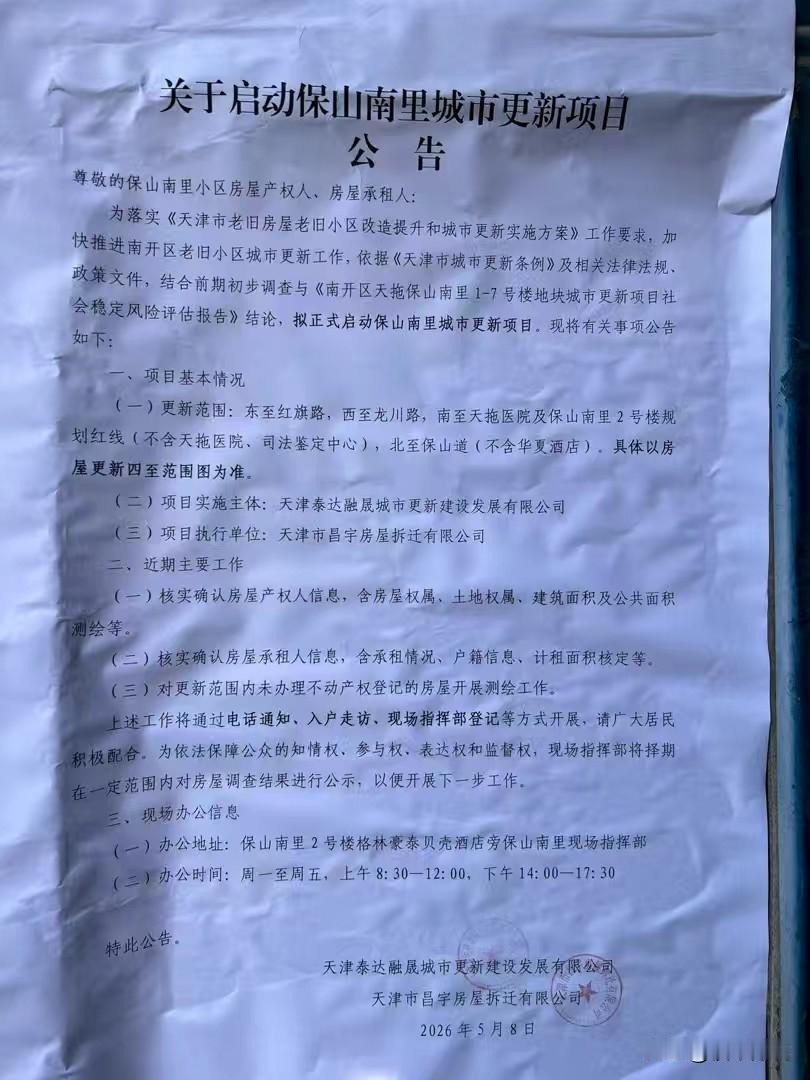 关于启动保山南里城市更新项目
公 告
尊敬的保山南里小区房屋产权人、房屋承租人：
为落实《天津市老旧房屋老旧小区改造提升和城市更新实施方案》工作要求，加
快推进南开区老旧小区城市更新工作，依据《天津市城市更新条例》及相关法律法规、
政策文件，结合前期初步调查与《南开区天拖保山南里1-7号楼地块城市更新项目社
会稳定风险评估报告》结论，拟正式启动保山南里城市更新项目。现将有关事项公告
如下：
一、项目基本情况
（一）更新范围：东至红旗路，西至龙川路，南至天拖医院及保山南里2号楼规
划红线（不含天拖医院、司法鉴定中心），北至保山道（不含华夏酒店）。具体以房
屋更新四至范围图为准。
（二）项目实施主体：天津泰达融晟城市更新建设发展有限公司
（三）项目执行单位：天津市昌宇房屋拆迁有限公司
二、近期主要工作
（一）核实确认房屋产权人信息，含房屋权属、土地权属、建筑面积及公共面积
测绘等。
（二）核实确认房屋承租人信息，含承租情况、户籍信息、计租面积核定等。
（三）对更新范围内未办理不动产权登记的房屋开展测绘工作。
上述工作将通过电话通知、入户走访、现场指挥部登记等方式开展，请广大居民
积极配合。为依法保障公众的知情权、参与权、表达权和监督权，现场指挥部将择期
在一定范围内对房屋调查结果进行公示，以便开展下一步工作。
三、现场办公信息
（一）办公地址：保山南里2号楼格林豪泰贝壳酒店旁保山南里现场指挥部
（二）办公时间：周一至周五，上午8:30—12:00，下午14:00—17:30
特此公告。
天津泰达融晟城市更新建设发展有限公司
天津市昌宇房屋拆迁有限公司
2026年5月8日